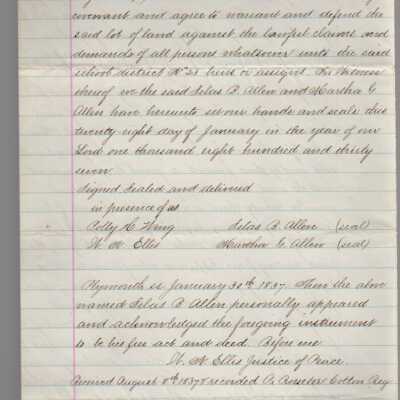 covenant and agree to warrant and defend the
said lot of land against the lawful claims and
demands of all persons whatsoever unto the said
school district No 21 heirs or assigns. In witness
thereof we the said Silas B. Allen and Martha C
Allen have hereunto set our hands and seals this
twenty eight day of January in the year of our
Lord one thousand eight hundred and thirty
seven.
Signed Sealed and delivered
in presence of us
Polly H. Wing Silas B. Allen (seal)
N. N Ellis Martha C. Allen (seal)
Plymouth ss January 30th 1837. Then the above
named Silas B Allen personally appeared
and acknowledged the foregoing instrument
to be his free act and deed. Before me
N. N Ellis Justice of Peace.
Received August 8th recorded Pr Rossiter Cotton Reg